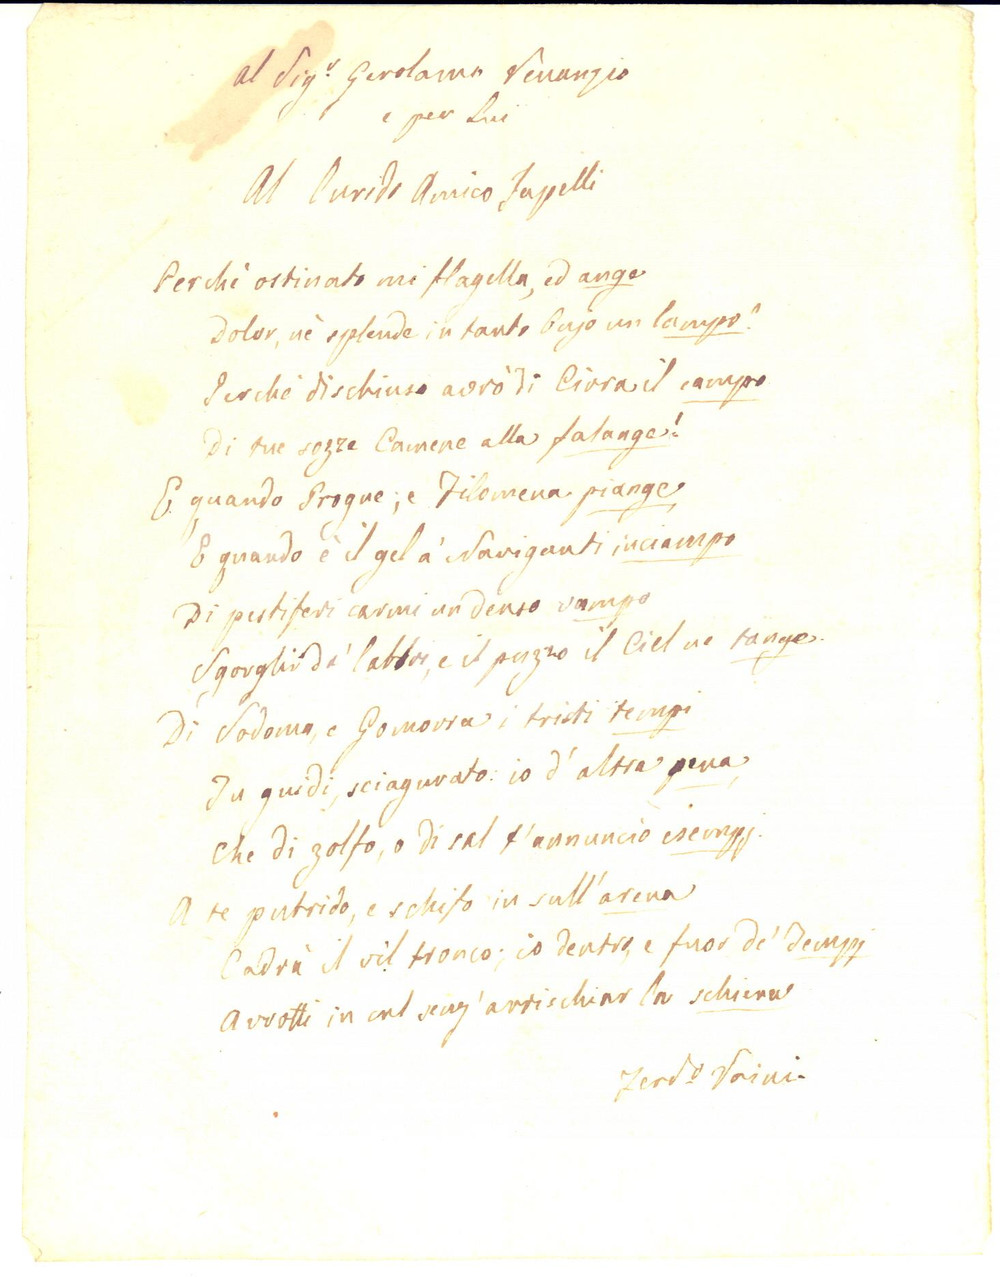 Al Sig.r Gerolamo Venanzio
e per Lui
Al lurido Amico Japelli
Perchè ostinato mi flagella, ed ange
Dolor, nè splende in tanto bujo un lampo?
Perchè dischiuso avrò di Cirra il campo
Di tue sozze Camene alla falange!
E quando Progne, e Filomena piange,
E quando è il gel a' Naviganti inciampo
Di pestiferi carmi un denso vampo
Sgorghi da' labbri, e il puzzo il Ciel ne tange.
Di Sodoma, e Gomorra i tristi tempi
Tu guidi, sciagurato: io d'altra pena,
Che di zolfo, o di sal t'annuncio esempj.
A te putrido, e schifo in sull'arena
Cadrà il vil tronco; io dentro, e fuor de' Tempj
Avrotti in cul senz'arrischiar la schiena
Ferd.o